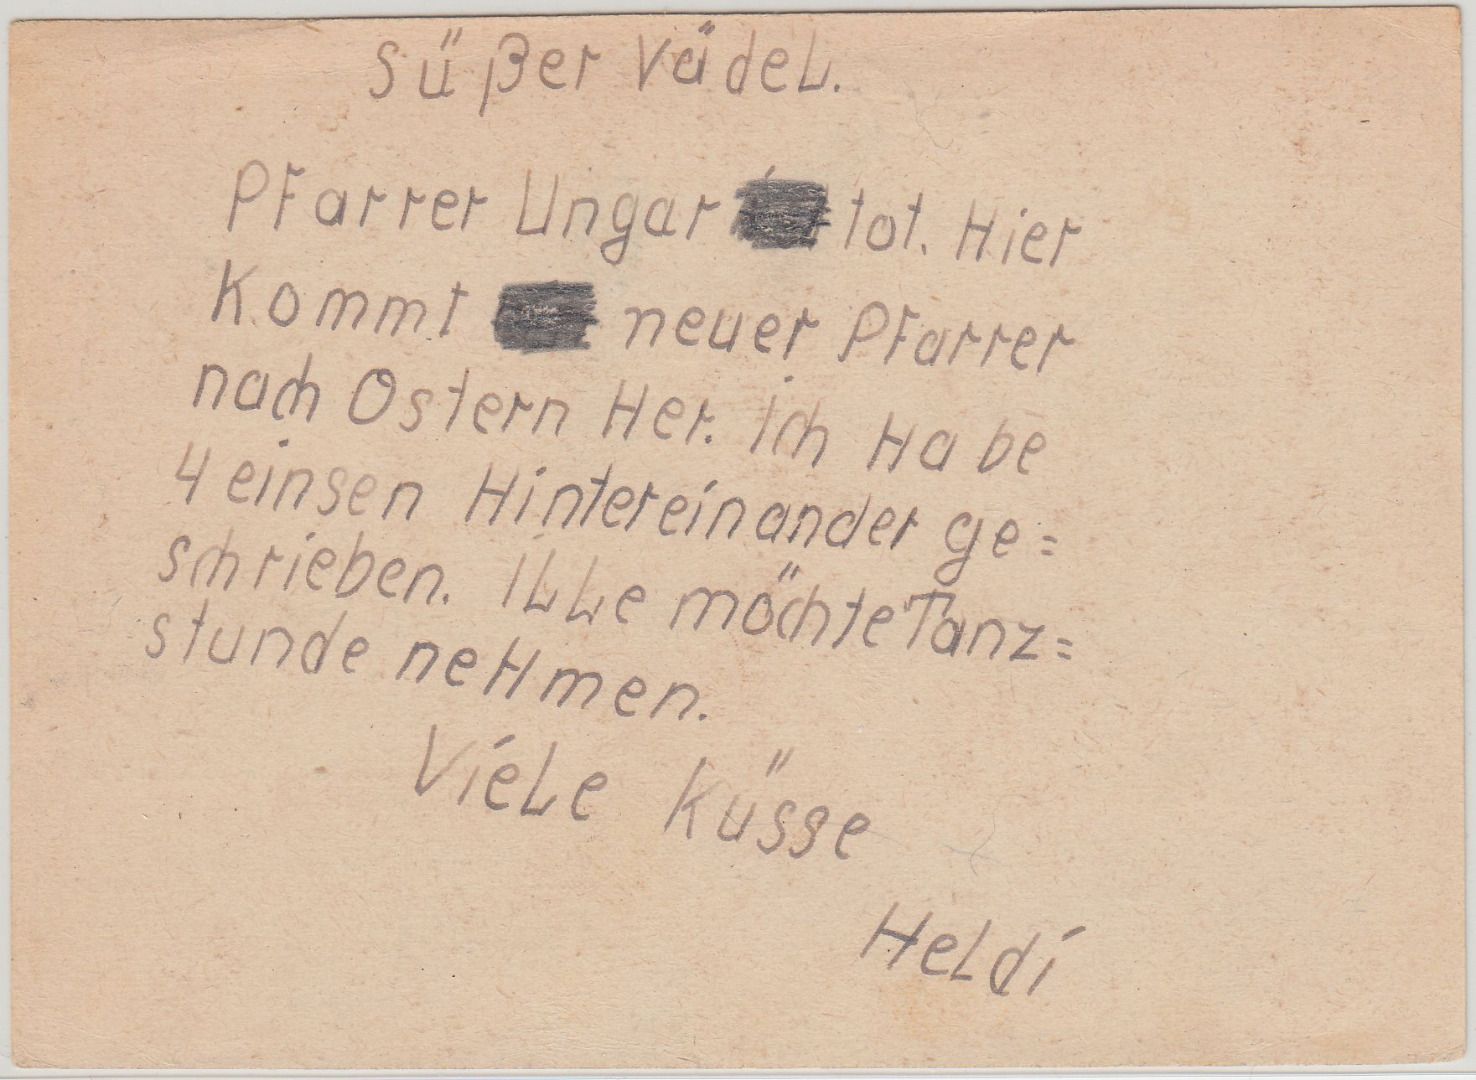 Süßer Vädel.
Pfarrer Ungar tot. Hier
Kommt neuer Pfarrer
nach Ostern Her. ich Habe
4 einsen Hintereinander ge=
schrieben. ILLe möchte Tanz=
stunde neHmen.
VieLe Küsse
HeLdi